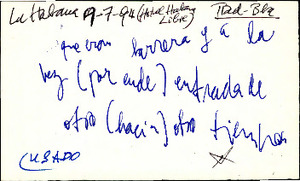 La Habana 9-7-94 (Hotel Habana Libre)
que eran barrera y a la
vez (por ende) entrada de
otro (hacia) otro tiempo
(USADO